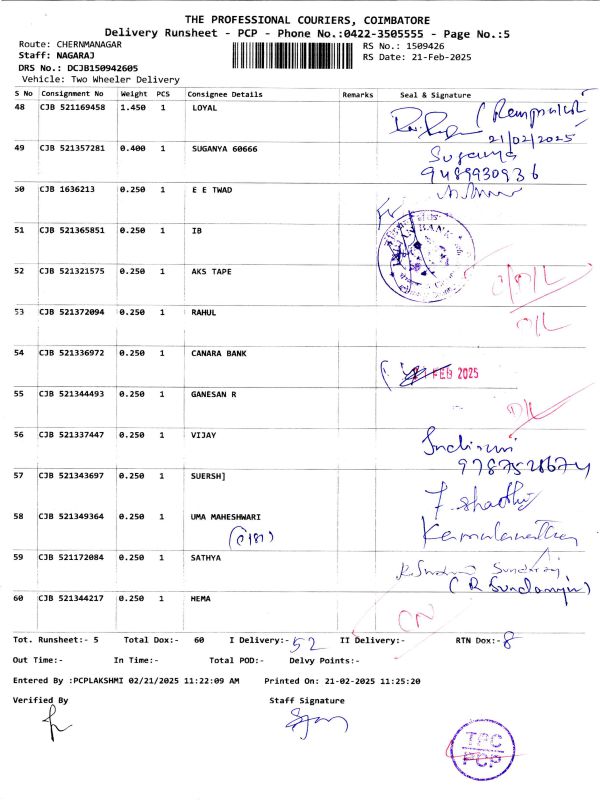 THE PROFESSIONAL COURIERS, COIMBATORE
Delivery Runsheet - PCP - Phone No.:0422-3505555 - Page No.:5
Route: CHERNMANAGAR RS No.: 1509426
Staff: NAGARAJ RS Date: 21-Feb-2025
DRS No.: DCJB150942605
Vehicle: Two Wheeler Delivery
S No Consignment No Weight PCS Consignee Details Remarks Seal & Signature
48 CJB 521169458 1.450 1 LOYAL
21/02/2025
49 CJB 521357281 0.400 1 SUGANYA 60666 Suganya
9489930936
50 CJB 1636213 0.250 1 E E TWAD
51 CJB 521365851 0.250 1 IB
52 CJB 521321575 0.250 1 AKS TAPE
53 CJB 521372094 0.250 1 RAHUL D/L
54 CJB 521336972 0.250 1 CANARA BANK FEB 2025
55 CJB 521344493 0.250 1 GANESAN R D/L
56 CJB 521337447 0.250 1 VIJAY
57 CJB 521343697 0.250 1 SUERSH]
58 CJB 521349364 0.250 1 UMA MAHESHWARI
59 CJB 521172084 0.250 1 SATHYA
60 CJB 521344217 0.250 1 HEMA CN
Tot. Runsheet:- 5 Total Dox:- 60 I Delivery:- 52 II Delivery:- RTN Dox:- 8
Out Time:- In Time:- Total POD:- Delvy Points:-
Entered By :PCPLAKSHMI 02/21/2025 11:22:09 AM Printed On: 21-02-2025 11:25:20
Verified By Staff Signature
TPC
PCP